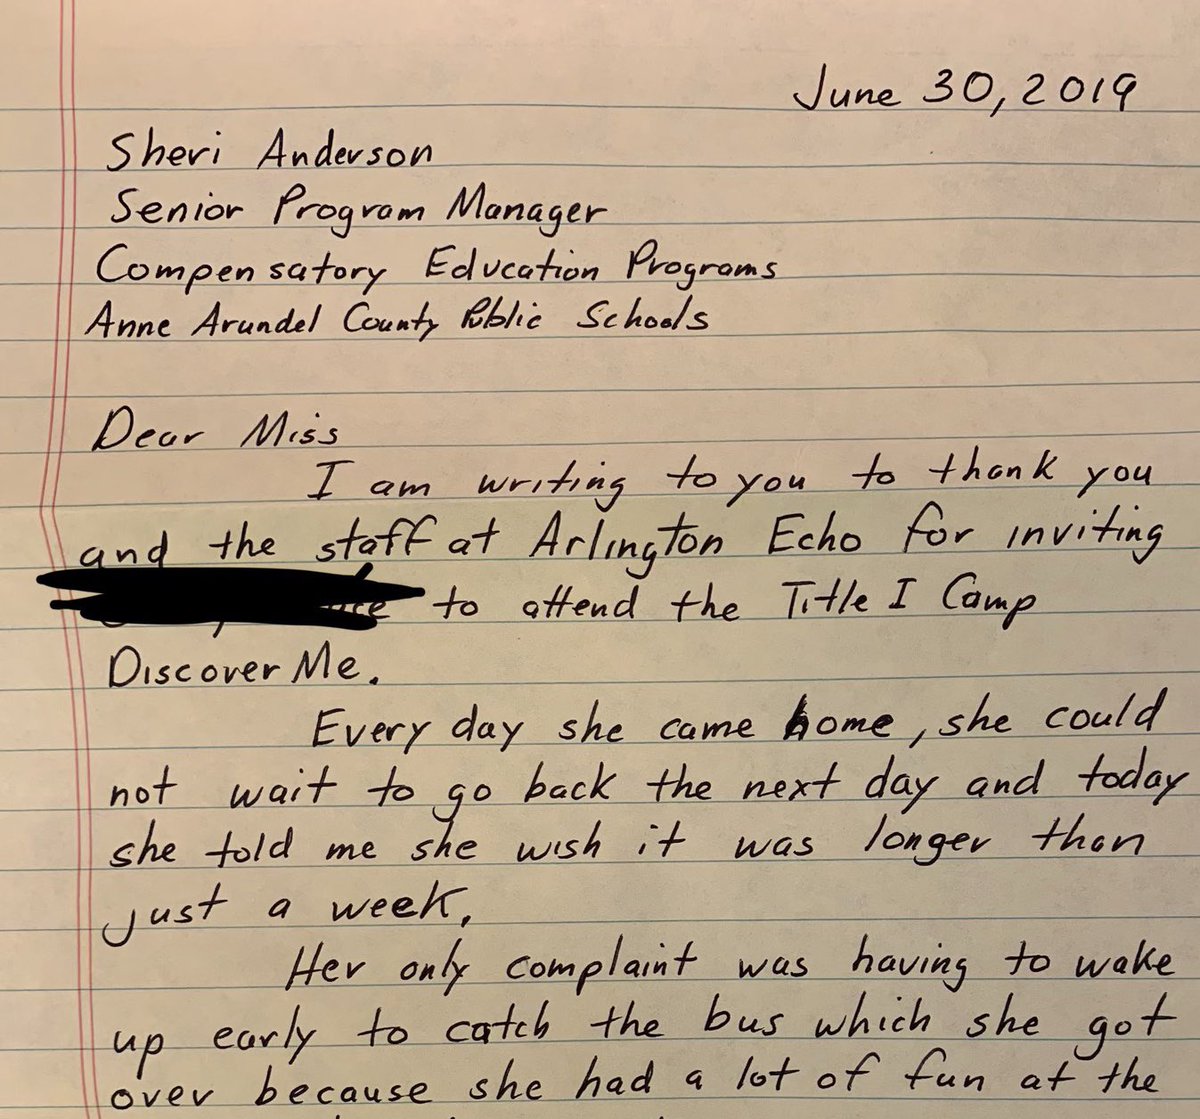 June 30, 2019
Sheri Anderson
Senior Program Manager
Compensatory Education Programs
Anne Arundel County Public Schools
Dear Miss
I am writing to you to thank you
and the staff at Arlington Echo for inviting
to attend the Title I Camp
Discover Me.
Every day she came home, she could
not wait to go back the next day and today
she told me she wish it was longer than
just a week.
Her only complaint was having to wake
up early to catch the bus which she got
over because she had a lot of fun at the